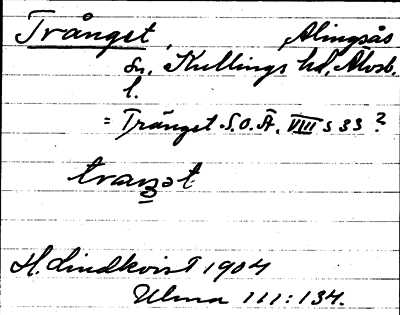 Trånget, Alingsås
sn, Kullings hd, Älvsb.
l.
= Trånget S.O.Ä. VIII s 33 ?
traŋət
H. Lindkvist 1904
Ulma 111:134.